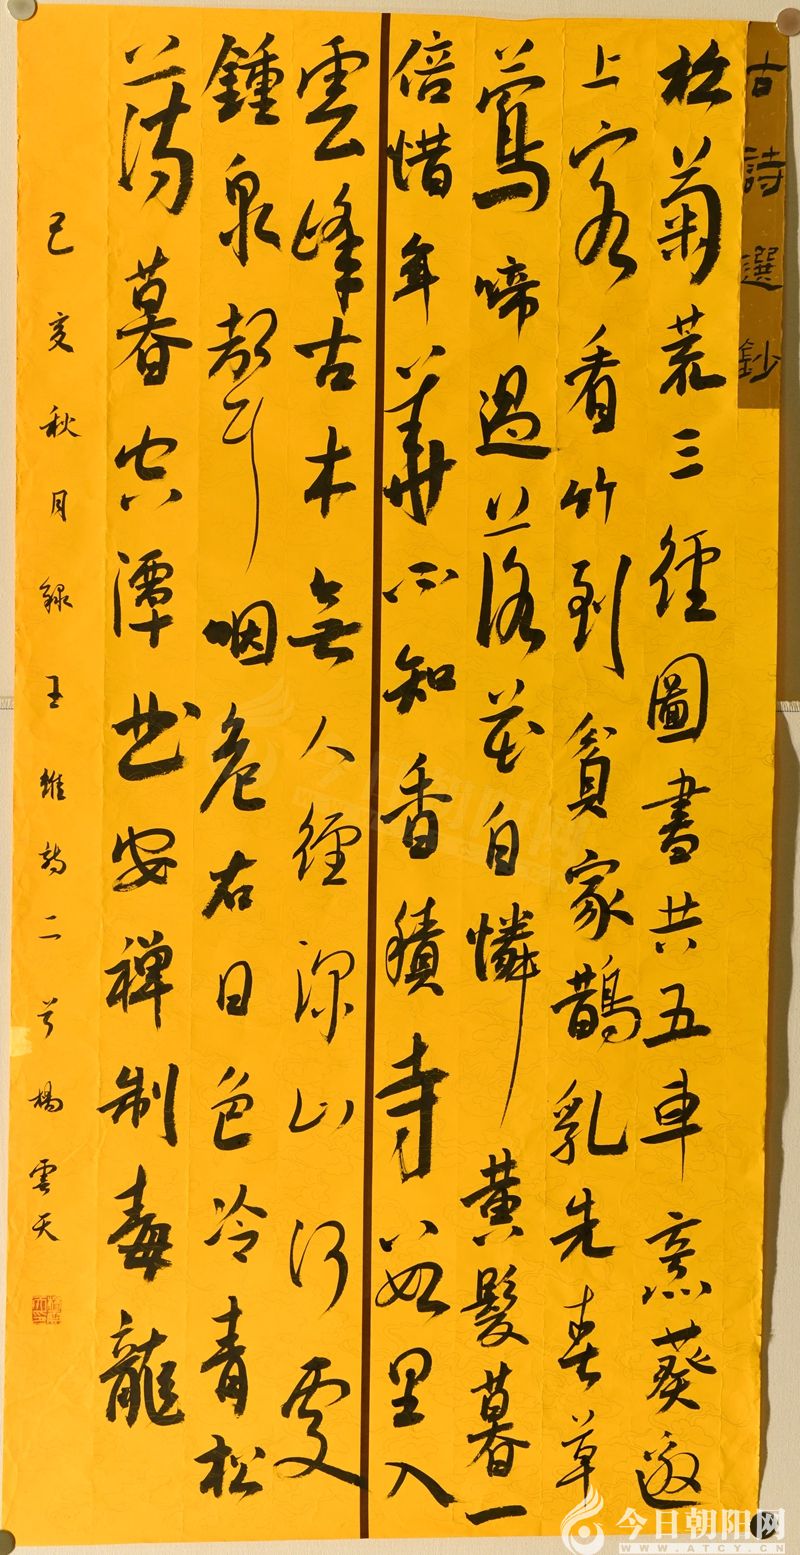 古詩選鈔
松菊荒三徑圖書共五車烹葵邀
上客看竹到貧家鵲乳先春草
鶯啼過落花自憐黃髮暮一
倍惜年華不知香積寺數里入
雲峰古木無人徑深山何處
鍾泉聲咽危石日色冷青松
薄暮空潭曲安禪制毒龍
己亥秋月録王維詩二首楊雲天
今日朝阳网
WWW.ATCY.CN